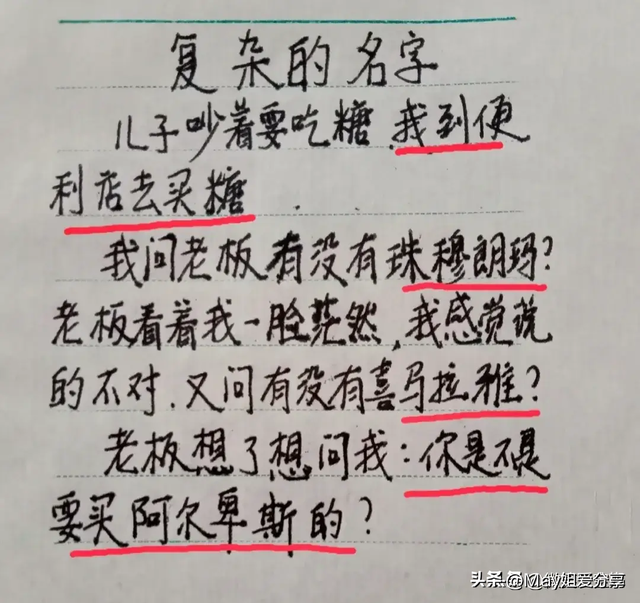 复杂的名字
儿子吵着要吃糖,我到便
利店去买糖
我问老板有没有珠穆朗玛?
老板看着我一脸茫然,我感觉说
的不对.又问有没有喜马拉雅?
老板想了想问我:你是不是
要买阿尔卑斯的?
头条@May姐爱分享